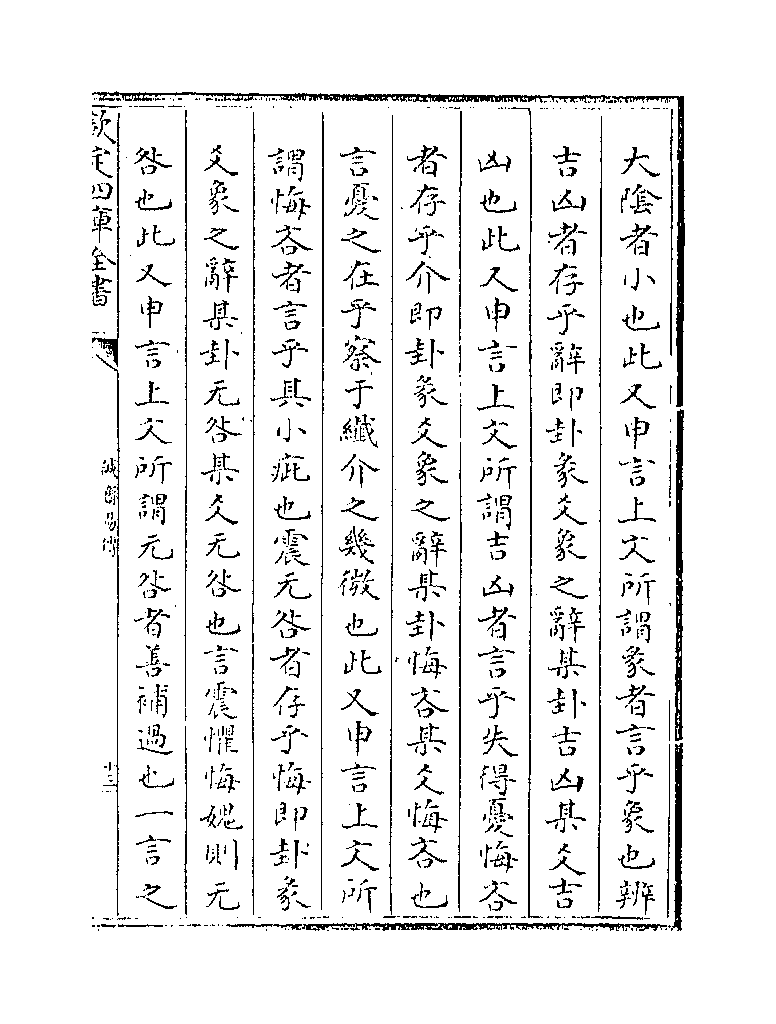 大陰者小也此又申言上文所謂彖者言乎象也辨
吉凶者存乎辭即卦彖爻象之辭某卦吉凶某爻吉
凶也此又申言上文所謂吉凶者言乎失得憂悔吝
者存乎介即卦彖爻象之辭某卦悔吝某爻悔吝也
言憂之在乎察于纎介之幾微也此又申言上文所
謂悔吝者言乎其小疵也震无咎者存乎悔即卦彖
爻象之辭某卦无咎某爻无咎也言震懼悔媿則无
咎也此又申言上文所謂无咎者善補過也一言之
欽定四庫全書
誠齋易傳